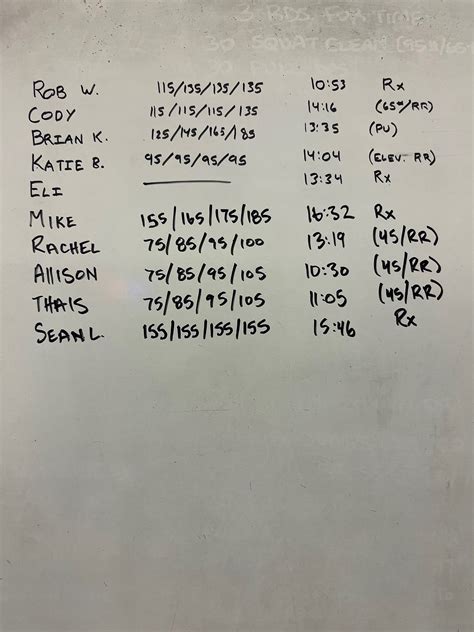 3 RDS FOR TIME
30 SQUAT CLEAN (95#/65
ROB W. 115/135/135/135 10:53 Rx
CODY 115/115/115/135 14:16 (65#/RR)
BRIAN K. 125/145/165/185 13:35 (PU)
KATIE B. 95/95/95/95 14:04 (ELEV. RR)
ELI 13:34 Rx
MIKE 155/165/175/185 16:32 Rx
RACHEL 75/85/95/100 13:19 (45/RR)
ALLISON 75/85/95/105 10:30 (45/RR)
THAIS 75/85/95/105 11:05 (45/RR)
SEAN L. 155/155/155/155 15:46 Rx